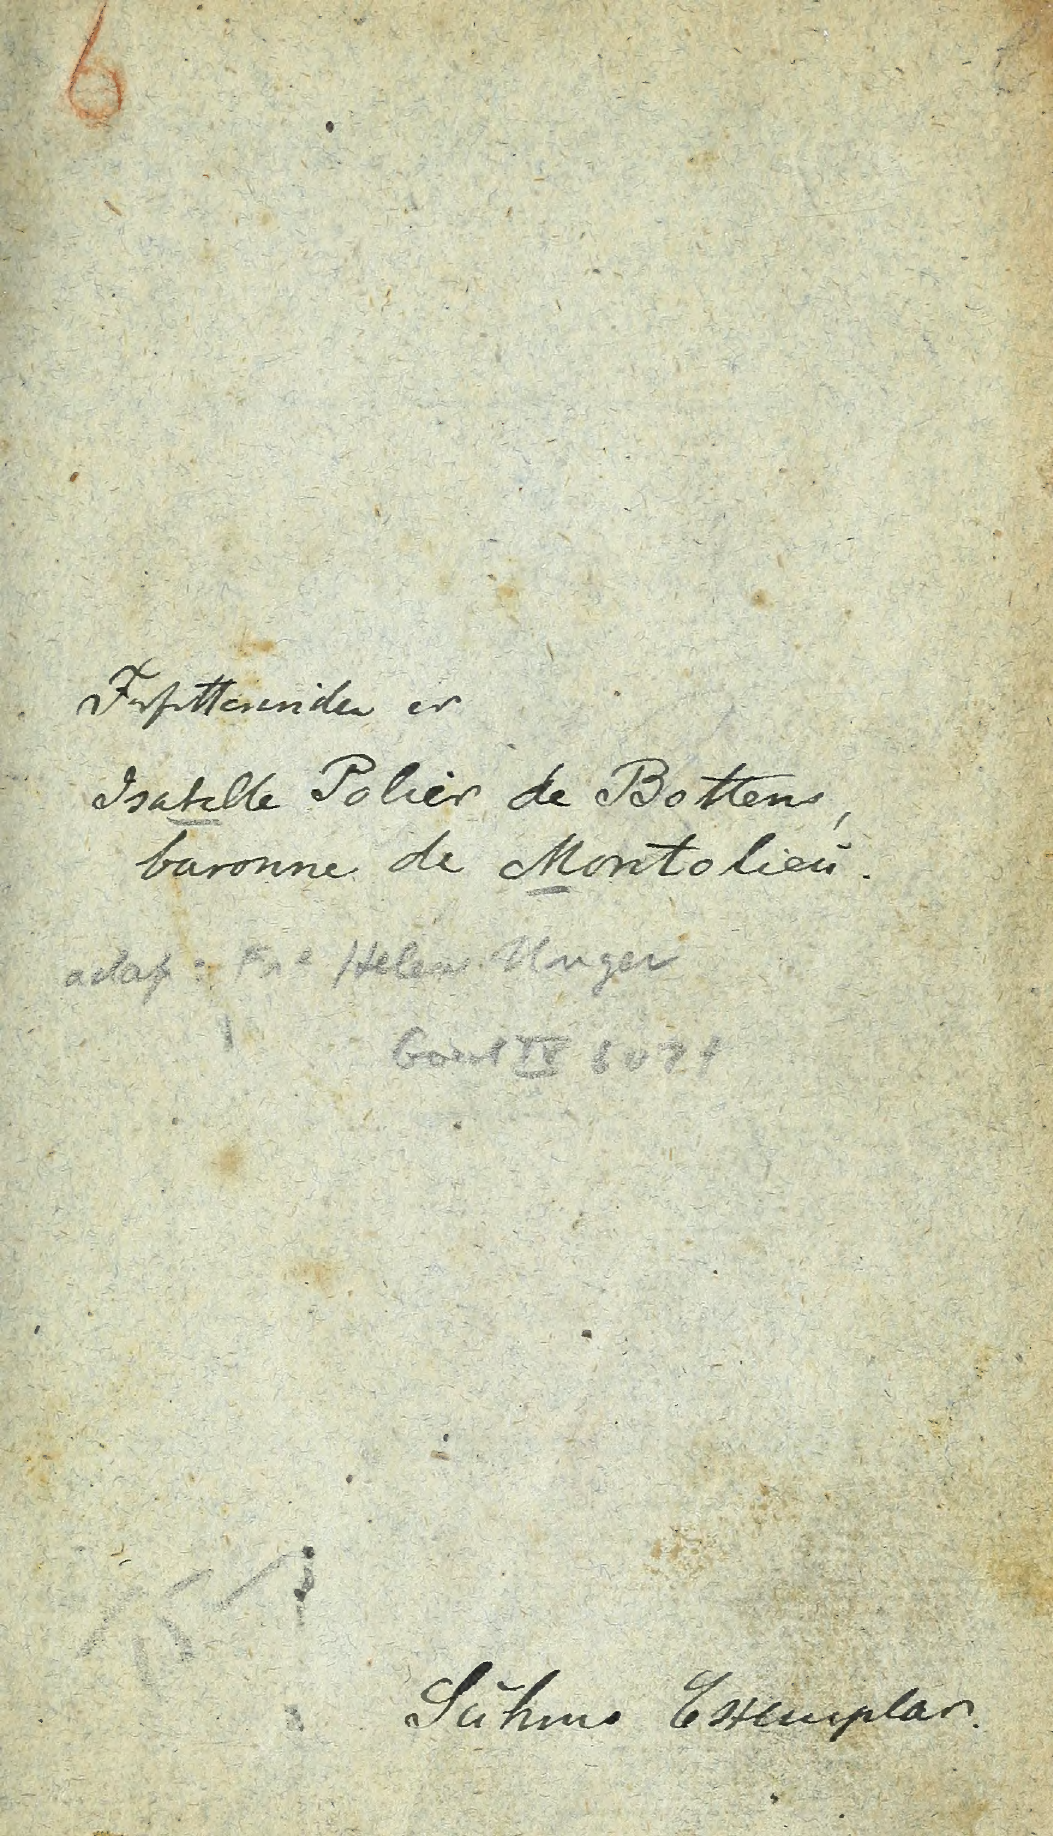 6
Forfatterinden er
Isabelle Polier de Bottens,
baronne de Montolieu.
adapt: Helene Unger
IV
Suhms Exemplar.